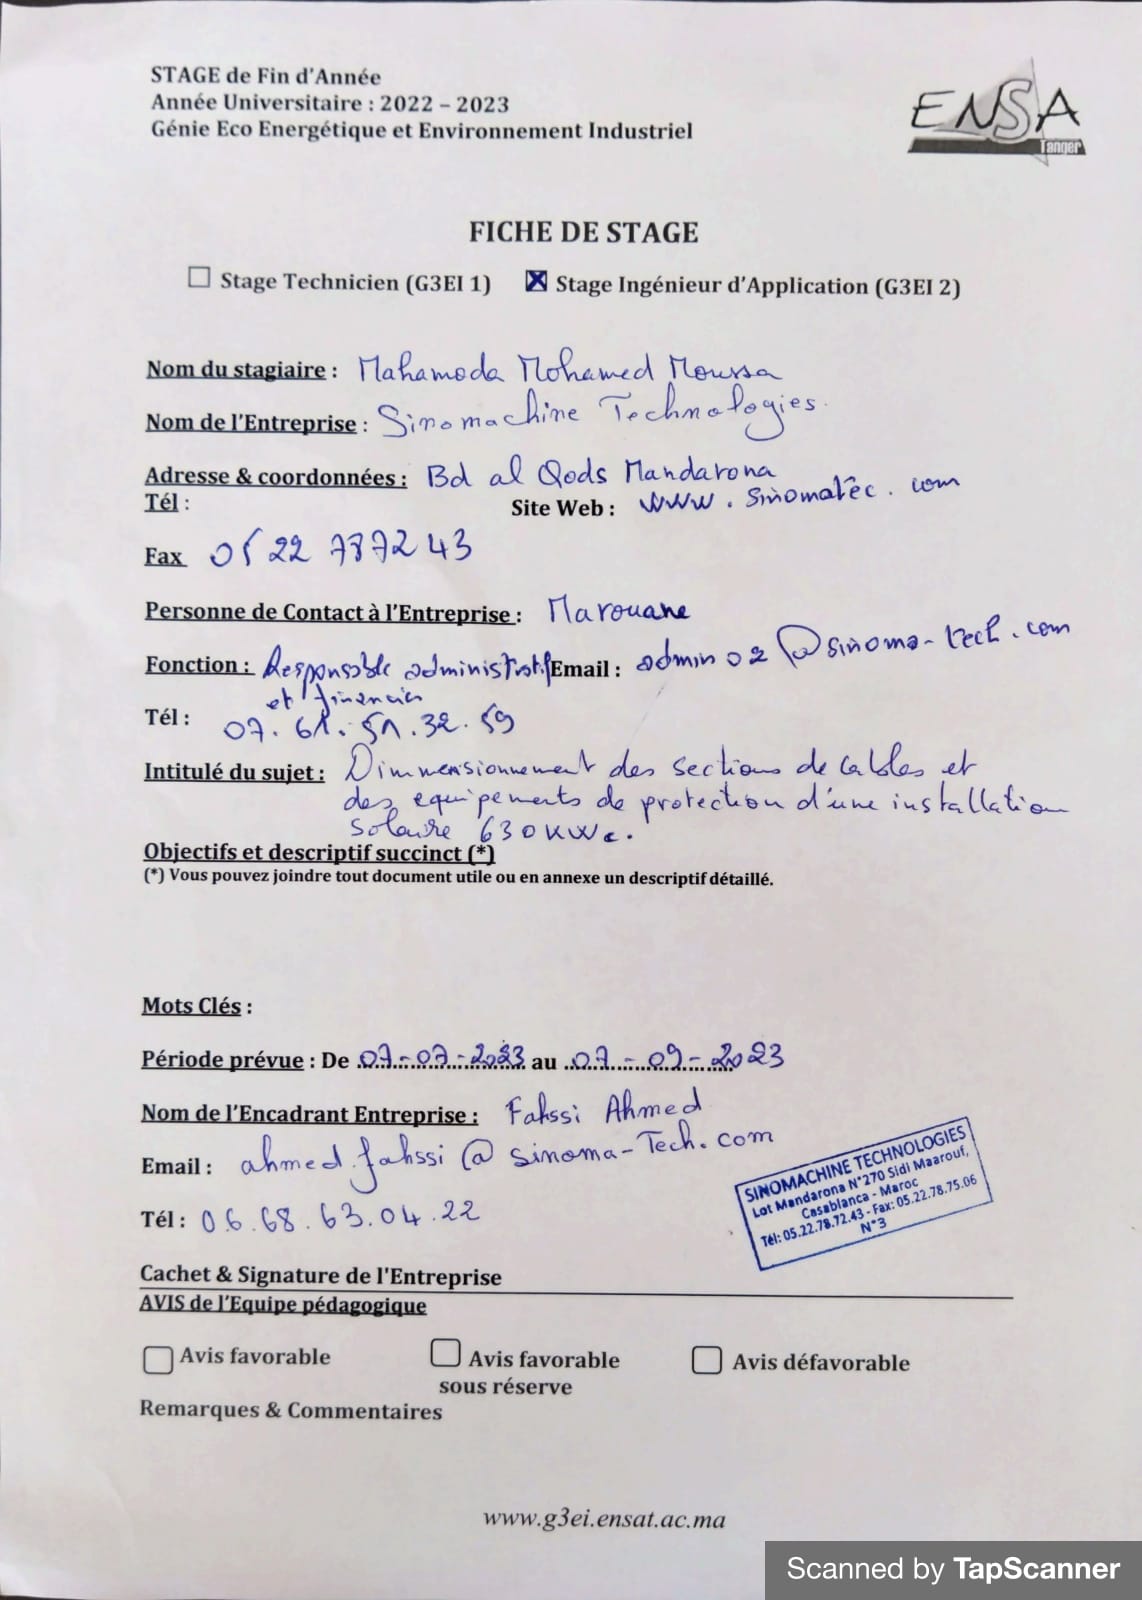 STAGE de Fin d'Année
Année Universitaire : 2022 – 2023
Génie Eco Energétique et Environnement Industriel
ENSA
Tanger
FICHE DE STAGE
Stage Technicien (G3EI 1) Stage Ingénieur d'Application (G3EI 2)
Nom du stagiaire : Mahamoda Mohamed Moussa
Nom de l'Entreprise : Sinomachine Technologies.
Adresse & coordonnées : Bd al Qods Mandarona
Tél : Site Web : www.sinomatec.com
Fax 05 22 787243
Personne de Contact à l'Entreprise : Marouane
Fonction : Responsable administratif Email : admin02@sinoma-tech.com
et financier
Tél : 07.61.51.32.59
Intitulé du sujet : Dimmensionnement des sections de cables et
des equipements de protection d'une installation
solaire 630KWc.
Objectifs et descriptif succinct (*)
(*) Vous pouvez joindre tout document utile ou en annexe un descriptif détaillé.
Mots Clés :
Période prévue : De 07-07-2023 au 07-09-2023
Nom de l'Encadrant Entreprise : Fahssi Ahmed
Email : ahmed.fahssi@sinoma-Tech.com
Tél : 06.68.63.04.22
SINOMACHINE TECHNOLOGIES
Lot Mandarona N°270 Sidi Maarouf,
Casablanca - Maroc
Tél: 05.22.78.72.43 - Fax: 05.22.78.75.06
N°3
Cachet & Signature de l'Entreprise
AVIS de l'Equipe pédagogique
Avis favorable Avis favorable Avis défavorable
sous réserve
Remarques & Commentaires
www.g3ei.ensat.ac.ma
Scanned by TapScanner